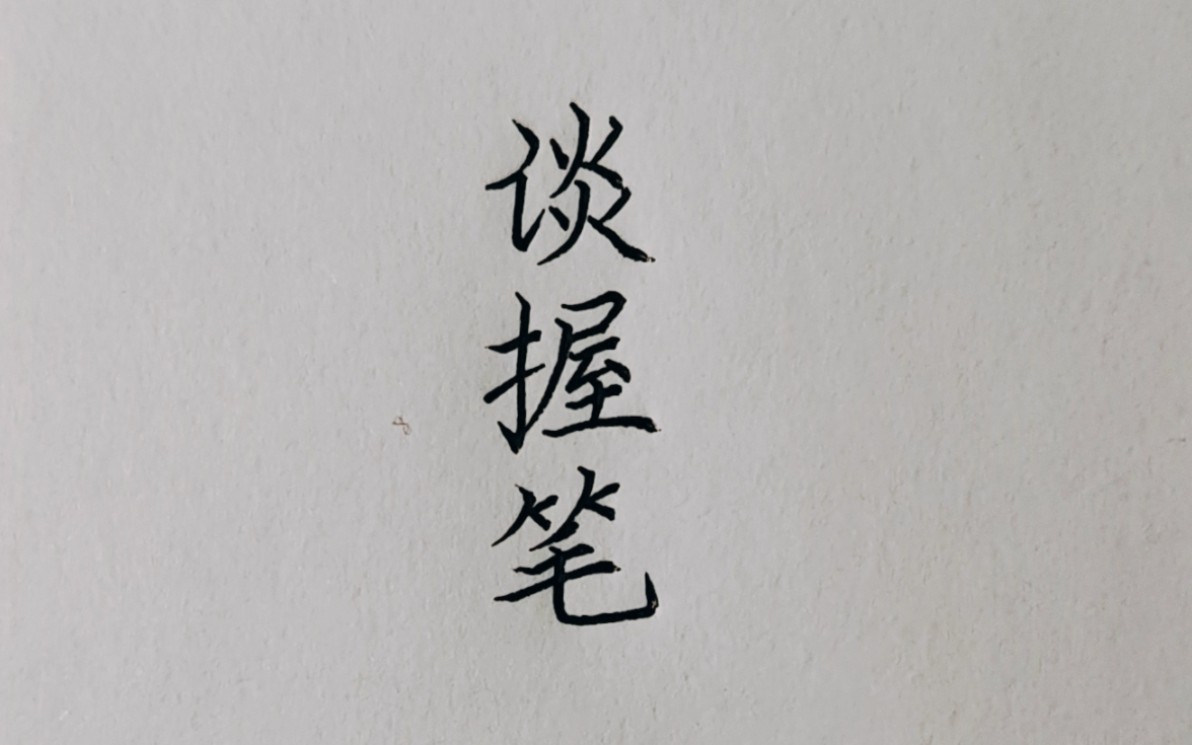 谈握笔